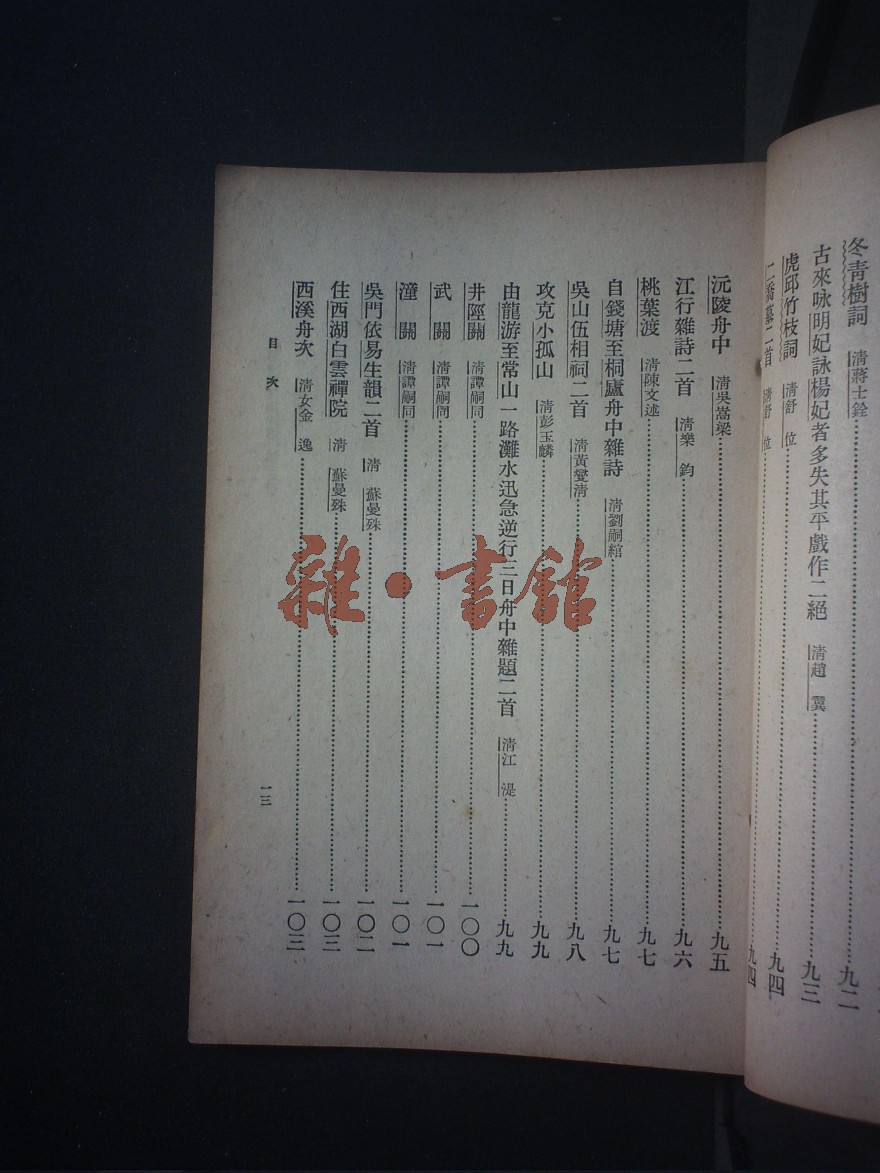 冬青樹詞 清蔣士銓……九二
古來咏明妃詠楊妃者多失其平戲作二絕 清趙 翼……九三
虎邱竹枝詞 清舒 位……九四
二喬墓二首 清舒 位……九四
沅陵舟中 清吳嵩梁……九五
江行雜詩二首 清樂 鈞……九六
桃葉渡 清陳文述……九七
自錢塘至桐廬舟中雜詩 清劉嗣綰……九七
吳山伍相祠二首 清黃燮清……九八
攻克小孤山 清彭玉麟……九九
由龍游至常山一路灘水迅急逆行三日舟中雜題二首 清江 湜……九九
井陘關 清譚嗣同……一〇〇
武 關 清譚嗣同……一〇一
潼 關 清譚嗣同……一〇一
吳門依易生韻二首 清 蘇曼殊……一〇二
住西湖白雲禪院 清 蘇曼殊……一〇三
西溪舟次 清女金 逸……一〇三
目 次
一三
雜·書館